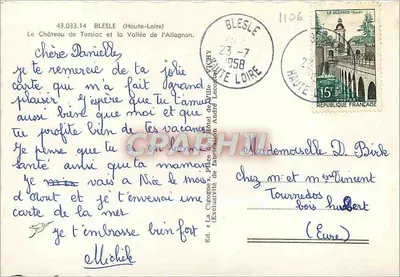 43.033.14 BLESLE (Haute-Loire)
Le Château de Torsiac et la Vallée de l'Allagnon.
Chère Danielle,
je te remercie de ta jolie
carte qui m'a fait grand
plaisir. J'espère que tu t'amuses
aussi bien que moi et que
tu profites bien de tes vacances
Je pense que tu es en bonne
santé ainsi que ta maman
Je vais à Nice le mois
d'Aout et je t'enverrai une
carte de la mer
je t'embrasse bien fort
Michèle
Ed. « La Cigogne »
BLESLE
23 -7
1958
HAUTE LOIRE
1106
LE QUESNOY
15F
REPUBLIQUE FRANÇAISE
Mademoiselle D. Birk
chez m. et m. Vincent
Tournedos
bois hubert
(Eure)
CPARAMA